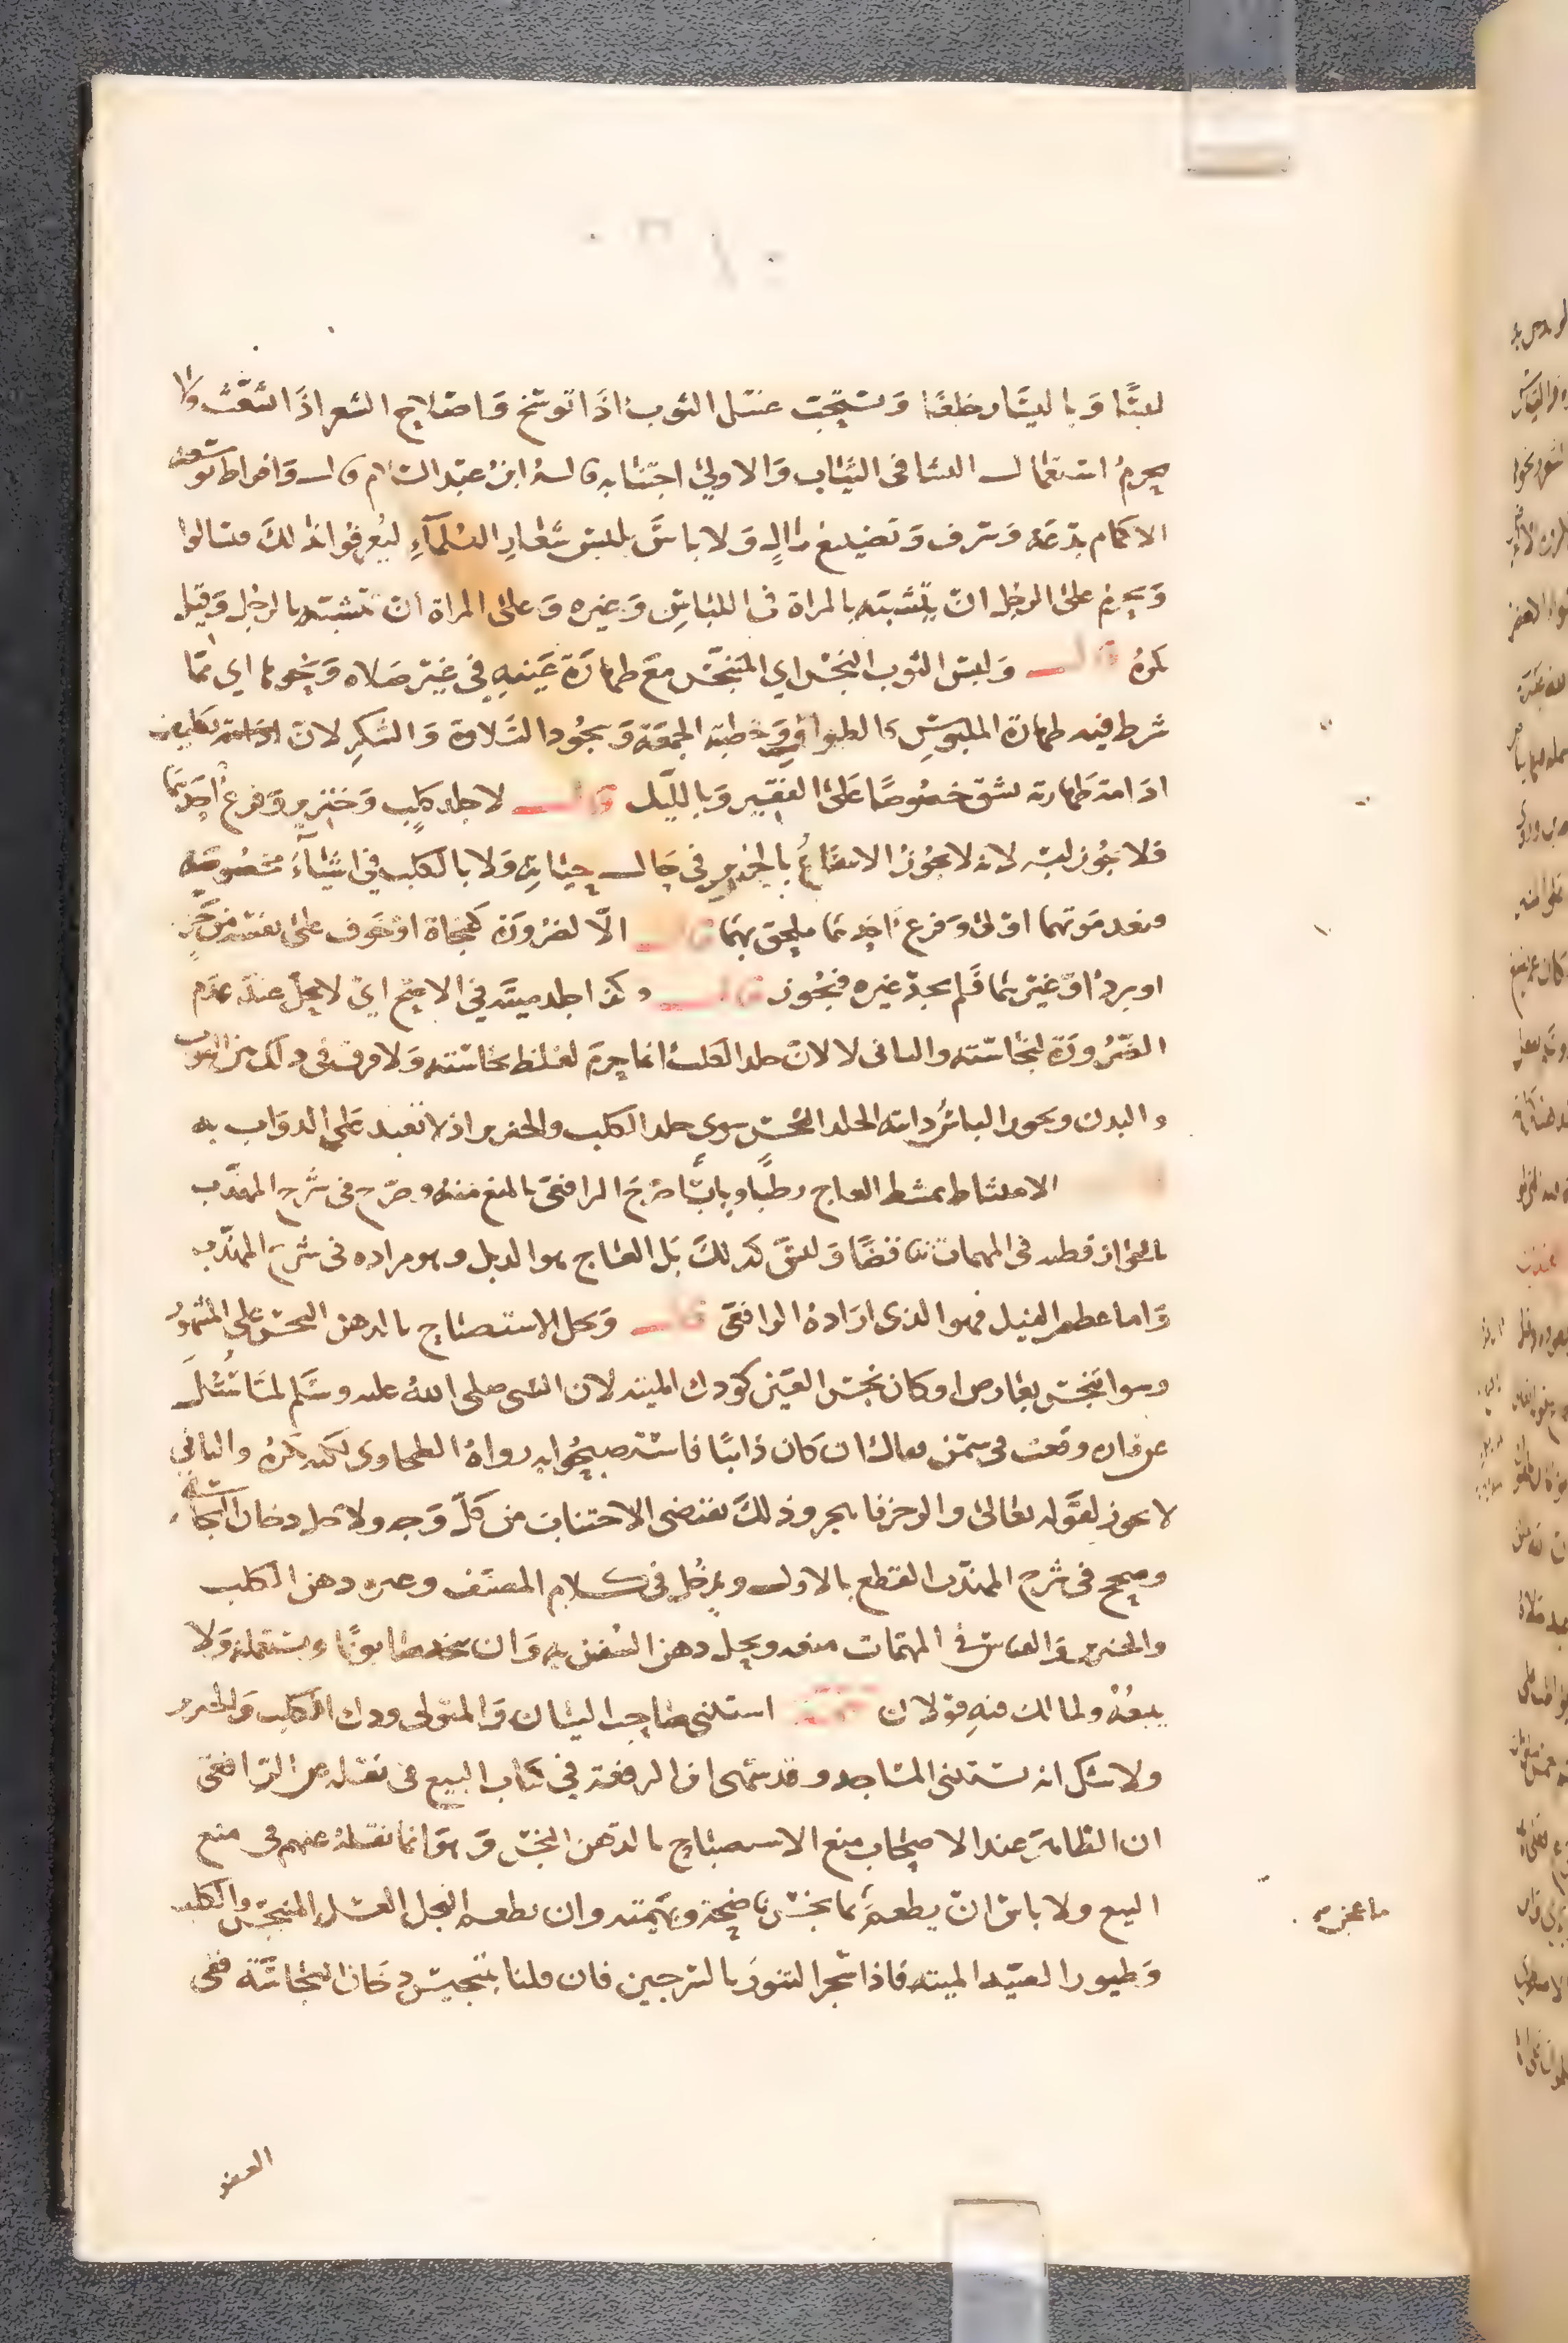 لبسًا وباليسار خلعًا وتستحب غسل الثوب اذا توسخ واصلاح الشعر اذا شعث ولا
يحرم استعمال النشا في الثياب والاولى اجتنابه قاله ابن عبد السلام قال وافراط توسعة
الاكمام بدعة وسرف وتضييع مال ولا باس بلبس شعار العلماء ليعرفوا بذلك فيسالوا
ويحرم على الرجل ان يتشبه بالمراة في اللباس وغيره وعلى المراة ان تتشبه بالرجل وقيل
يكره قال ولبس الثوب النجس اي المتنجس مع طهارة عينه في غير صلاه ونحوها اي مما
شرط فيه طهارة الملبوس كالطواف وخطبة الجمعة وسجود التلاوة والشكر لان تكليف
ادامة طهارته تشق خصوصا على الفقير وبالليل قال لا جلد كلب وخنزير وفرع احدهما
فلا يجوز لبسه لانه لا يجوز الانتفاع بالخنزير في حال حياته ولا بالكلب في اشياء مخصوصة
وبعد موتهما اولى وفرع احدهما ملحق بهما قال الا لضرورة كفجاة او خوف على نفسه من حر
او برد او غيرهما فلم يجد غيره فيجوز قال وكذا جلد ميتة في الاصح اي لا يحل عند عدم
الضرورة لنجاسته والثاني لا لان جلد الكلب انما حرم لغلظ نجاسته ولا فرق في ذلك من الثوب
والبدن ويجوز الباس دابته الجلد النجس سوى جلد الكلب والخنزير اذ لا تعبد على الدواب به
الامتشاط بمشط العاج رطبا ويابسا صرح الرافعي بالمنع منه وصرح في شرح المهذب
بالجواز فظنه في المهمات تناقضا وليس كذلك بل العاج هو الذبل وهو مراده في شرح المهذب
واما عظم الفيل فهو الذي اراده الرافعي قال ويحل الاستصباح بالدهن النجس على المشهور
وسوا تنجس بعارض او كان نجس العين كودك الميتة لان النبي صلى الله عليه وسلم لما سئل
عن فاره وقعت في سمن فقال ان كان ذائبا فاستصبحوا به رواه الطحاوي لكنه يكره والثاني
لا يجوز لقوله تعالى والرجز فاهجر وذلك يقتضي الاجتناب من كل وجه ولاجل دخان النجاسة
وصحح في شرح المهذب القطع بالاول ويدخل في كلام المصنف وغيره دهن الكلب
والخنزير والقياس في المهمات منعه ويحل دهن السفن به وان يتخذ صابونا ويستعمله ولا
يبيعه ولمالك فيه قولان استثنى صاحب البيان والمتولي ودك الكلب والخنزير
ولا شك انه يستثنى المساجد وقد سها ابن الرفعة في كتاب البيع في نقله عن الرافعي
ان الظاهر عند الاصحاب منع الاستصباح بالدهن النجس وهو انما نقله عنهم في منع
البيع ولا باس ان يطعم ما نجس ناضحه وبهيمته وان يطعم النحل العسل المتنجس والكلب
وطيور الصيد الميتة فاذا سجر التنور بالسرجين فان قلنا بتنجيس دخان النجاسة ففي
ماعجن به
العفو